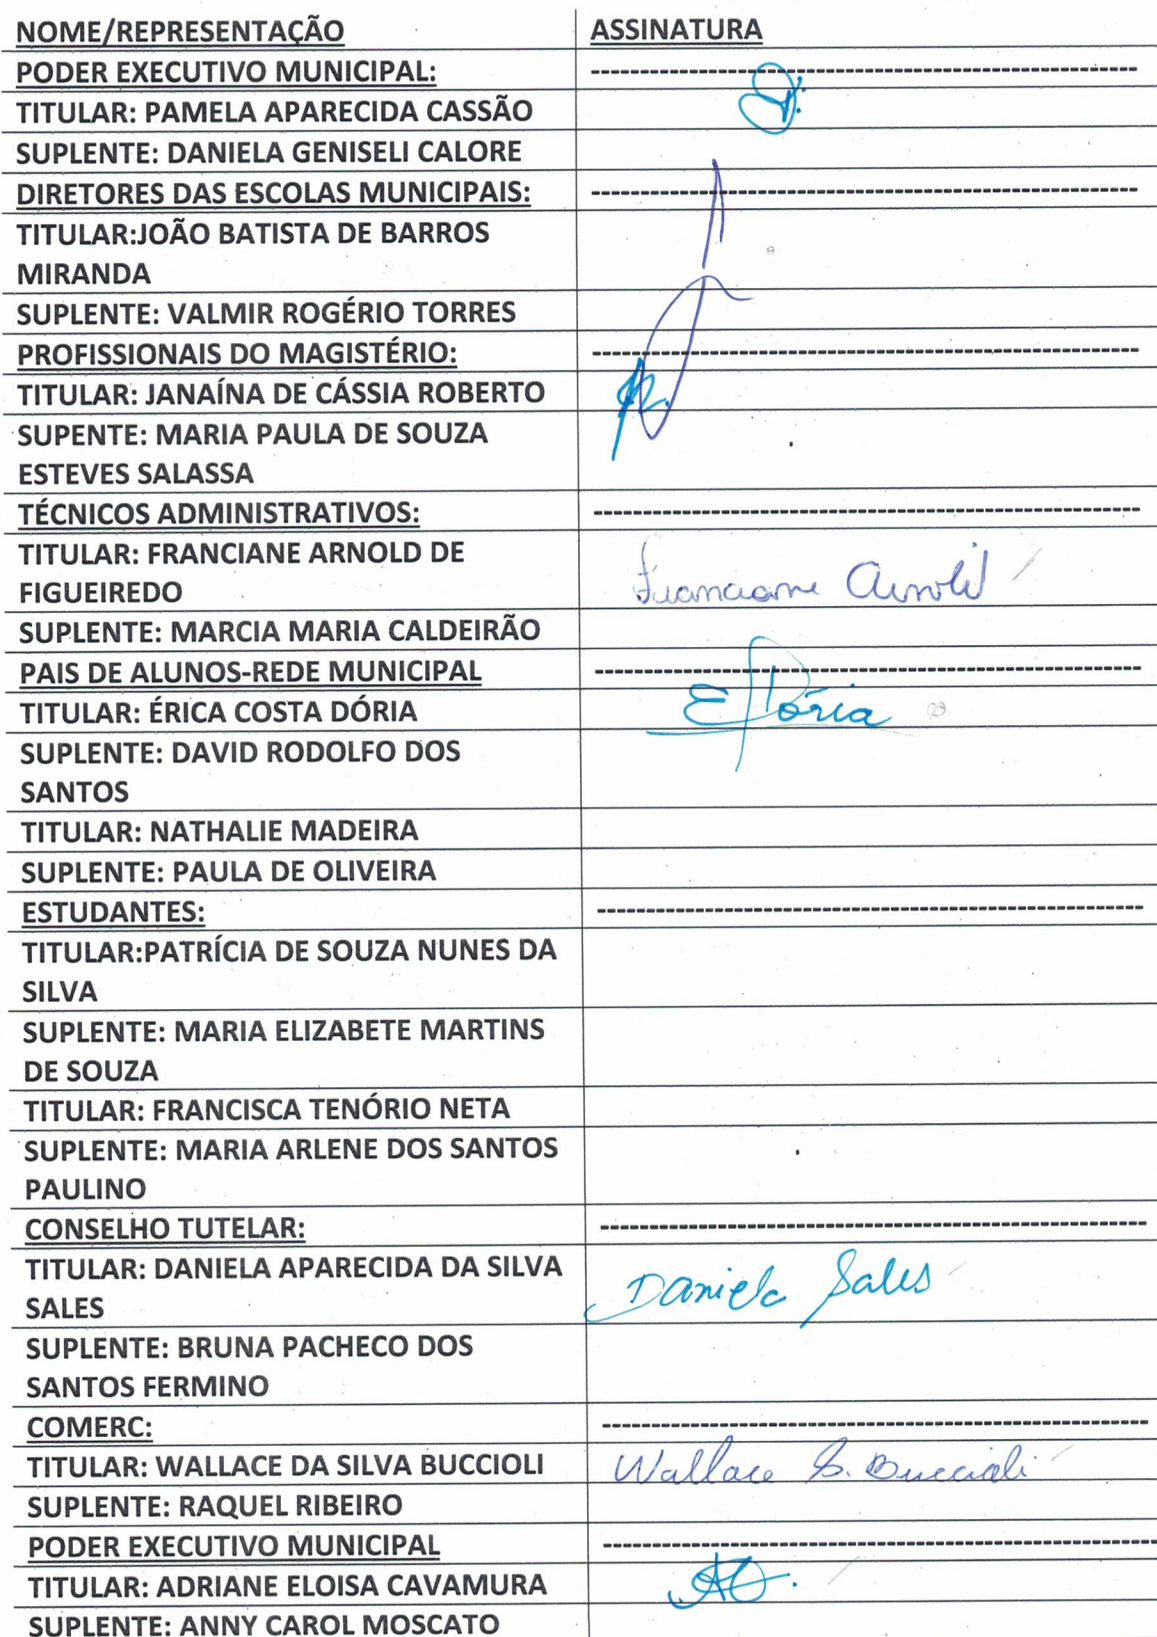 NOME/REPRESENTAÇÃO ASSINATURA
PODER EXECUTIVO MUNICIPAL: ----------------------------------------------------------------
TITULAR: PAMELA APARECIDA CASSÃO
SUPLENTE: DANIELA GENISELI CALORE
DIRETORES DAS ESCOLAS MUNICIPAIS: ----------------------------------------------------------------
TITULAR:JOÃO BATISTA DE BARROS
MIRANDA
SUPLENTE: VALMIR ROGÉRIO TORRES
PROFISSIONAIS DO MAGISTÉRIO: ----------------------------------------------------------------
TITULAR: JANAÍNA DE CÁSSIA ROBERTO
SUPENTE: MARIA PAULA DE SOUZA
ESTEVES SALASSA
TÉCNICOS ADMINISTRATIVOS: ----------------------------------------------------------------
TITULAR: FRANCIANE ARNOLD DE
FIGUEIREDO Franciane Arnold
SUPLENTE: MARCIA MARIA CALDEIRÃO
PAIS DE ALUNOS-REDE MUNICIPAL ----------------------------------------------------------------
TITULAR: ÉRICA COSTA DÓRIA E Dória
SUPLENTE: DAVID RODOLFO DOS
SANTOS
TITULAR: NATHALIE MADEIRA
SUPLENTE: PAULA DE OLIVEIRA
ESTUDANTES: ----------------------------------------------------------------
TITULAR:PATRÍCIA DE SOUZA NUNES DA
SILVA
SUPLENTE: MARIA ELIZABETE MARTINS
DE SOUZA
TITULAR: FRANCISCA TENÓRIO NETA
SUPLENTE: MARIA ARLENE DOS SANTOS
PAULINO
CONSELHO TUTELAR: ----------------------------------------------------------------
TITULAR: DANIELA APARECIDA DA SILVA
SALES Daniela Sales
SUPLENTE: BRUNA PACHECO DOS
SANTOS FERMINO
COMERC: ----------------------------------------------------------------
TITULAR: WALLACE DA SILVA BUCCIOLI Wallace S. Buccioli
SUPLENTE: RAQUEL RIBEIRO
PODER EXECUTIVO MUNICIPAL ----------------------------------------------------------------
TITULAR: ADRIANE ELOISA CAVAMURA
SUPLENTE: ANNY CAROL MOSCATO